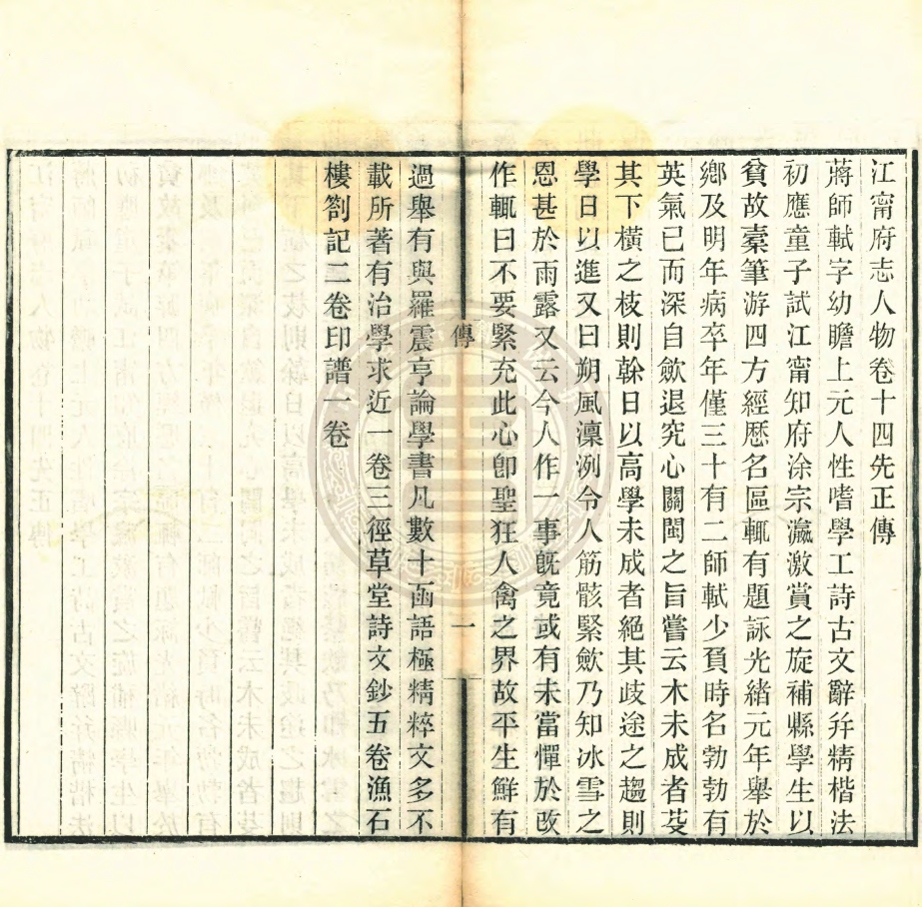 江甯府志人物卷十四先正傳
蔣師軾字幼瞻上元人性嗜學工詩古文辭幷精楷法
初應童子試江甯知府涂宗瀛激賞之旋補縣學生以
貧故橐筆游四方經歷名區輒有題詠光緒元年舉於
鄉及明年病卒年僅三十有二師軾少負時名勃勃有
英氣已而深自歛退究心關閩之旨嘗云木未成者芟
其下橫之枝則榦日以高學未成者絕其歧途之趨則
學日以進又曰朔風凜冽令人筋骸緊歛乃知冰雪之
恩甚於雨露又云今人作一事旣竟或有未當憚於改
作輒曰不要緊充此心卽聖狂人禽之界故平生鮮有
傳
一
過舉有與羅震亨論學書凡數十函語極精粹文多不
載所著有治學求近一卷三徑草堂詩文鈔五卷漁石
樓劄記二卷印譜一卷